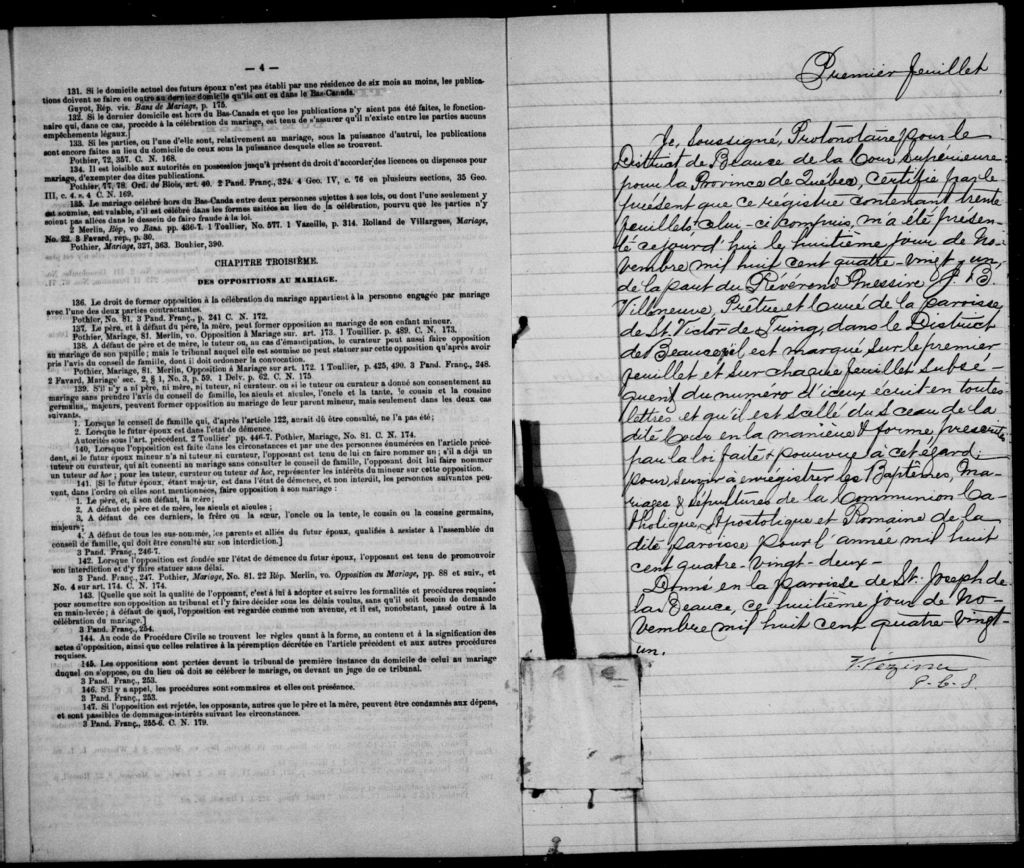 — 4 —
131. Si le domicile actuel des futurs époux n'est pas établi par une résidence de six mois au moins, les publica-
tions doivent se faire en outre au dernier domicile qu'ils ont eu dans le Bas-Canada.
Guyot, Rép. vis. Bans de Mariage, p. 175.
132. Si le dernier domicile est hors du Bas-Canada et que les publications n'y aient pas été faites, le fonction-
naire qui, dans ce cas, procède à la célébration du mariage, est tenu de s'assurer qu'il n'existe entre les parties aucuns
empêchements légaux.]
133. Si les parties, ou l'une d'elle sont, relativement au mariage, sous la puissance d'autrui, les publications
sont encore faites au lieu du domicile de ceux sous la puissance desquels elles se trouvent.
Pothier, 72, 357. C. N. 168.
134. Il est loisible aux autorités en possession jusqu'à présent du droit d'accorder des licences ou dispenses pour
mariage, d'exempter des dites publications.
Pothier, 77, 78. Ord. de Blois, art. 40. 2 Pand. Franç., 324. 4 Geo. IV, c. 76 en plusieurs sections, 35 Geo.
III, c. 4, s. 4 C. N. 169.
135. Le mariage célébré hors du Bas-Canda entre deux personnes sujettes à ses lois, ou dont l'une seulement y
est soumise, est valable, s'il est célébré dans les formes usitées au lieu de la célébration, pourvu que les parties n'y
soient pas allées dans le dessein de faire fraude à la loi.
2 Merlin, Rép, vo Bans. pp. 436-7. 1 Toullier, No. 577. 1 Vazeille, p. 314. Rolland de Villargues, Mariage,
No. 22. 3 Favard, rep., p. 30.
Pothier, Mariage, 327, 363. Bouhier, 390.
CHAPITRE TROISIÈME.
DES OPPOSITIONS AU MARIAGE.
136. Le droit de former opposition à la célébration du mariage appartient à la personne engagée par mariage
avec l'une des deux parties contractantes.
Pothier, No. 81. 3 Pand. Franç., p. 241 C. N. 172.
137. Le père, et à défaut du père, la mère, peut former opposition au mariage de son enfant mineur.
Pothier, Mariage, 81. Merlin, vo. Opposition à Mariage sur. art. 173. 1 Touillier p. 489. C. N. 173.
138. A défaut de père et de mère, le tuteur ou, au cas d'émancipation, le curateur peut aussi faire opposition
au mariage de son pupille; mais le tribunal auquel elle est soumise ne peut statuer sur cette opposition qu'après avoir
pris l'avis du conseil de famille, dont il doit ordonner la convocation.
Pothier, Mariage, 81. Merlin, Opposition à Mariage sur art. 172. 1 Toullier, p. 425, 490. 3 Pand. Franç., 248.
2 Favard, Mariage' sec. 2, § 1, No. 3, p. 59. 1 Delv. p. 62. C. N. 175
139. S'il n'y a ni père, ni mère, ni tuteur, ni curateur, ou si le tuteur ou curateur a donné son consentement au
mariage sans prendre l'avis du conseil de famille, les aïeuls et aïeules, l'oncle et la tante, le cousin et la cousine
germains, majeurs, peuvent former opposition au mariage de leur parent mineur, mais seulement dans les deux cas
suivants.
1. Lorsque le conseil de famille qui, d'après l'article 122, aurait dû être consulté, ne l'a pas été;
2. Lorsque le futur époux est dans l'état de démence.
Autorités sous l'art. précédent. 2 Toullier' pp. 446-7. Pothier, Mariage, No. 81. C. N. 174.
140. Lorsque l'opposition est faite dans les circonstances et par une des personnes énumérées en l'article précé-
dent, si le futur époux mineur n'a ni tuteur ni curateur, l'opposant est tenu de lui en faire nommer un; s'il a déjà un
tuteur ou curateur, qui ait consenti au mariage sans consulter le conseil de famille, l'opposant doit lui faire nommer
un tuteur ad hoc; pour les tuteur, curateur ou tuteur ad hoc, représenter les intérêts du mineur sur cette opposition.
141. [Si le futur époux, étant majeur, est dans l'état de démence, et non interdit, les personnes suivantes peu-
vent, dans l'ordre où elles sont mentionnées, faire opposition à son mariage:
1. Le père, et, à son défaut, la mère;
2. A défaut de père et de mère, les aïeuls et aïeules;
3. A défaut de ces derniers, le frère ou la sœur, l'oncle ou la tente, le cousin ou la cousine germains,
majeurs;
4. A défaut de tous les sus-nommés, les parents et alliés du futur époux, qualifiés à assister à l'assemblée du
conseil de famille, qui doit être consulté sur son interdiction.]
3 Pand. Franç., 246-7.
142. Lorsque l'opposition est fondée sur l'état de démence du futur époux, l'opposant est tenu de promouvoir
son interdiction et d'y faire statuer sans délai.
3 Pand. Franç., 247. Pothier, Mariage, No. 81. 22 Rép. Merlin, vo. Opposition au Mariage, pp. 88 et suiv., et
No. 4 sur art. 174. C. N. 174.
143. [Quelle que soit la qualité de l'opposant, c'est à lui à adopter et suivre les formalités et procédures requises
pour soumettre son opposition au tribunal et l'y faire décider sous les délais voulus, sans qu'il soit besoin de demande
en main-levée; à défaut de quoi, l'opposition est regardée comme non avenue, et il est, nonobstant, passé outre à la
célébration du mariage.]
3 Pand. Franç., 254.
144. Au code de Procédure Civile se trouvent les règles quant à la forme, au contenu et à la signification des
actes d'opposition, ainsi que celles relatives à la péremption décrétée en l'article précédent et aux autres procédures
requises.
145. Les oppositions sont portées devant le tribunal de première instance du domicile de celui au mariage
duquel on s'oppose, ou du lieu où doit se célébrer le mariage, ou devant un juge de ce tribunal.
3 Pand. Franç., 253.
146. S'il y a appel, les procédures sont sommaires et elles ont préséance.
3 Pand. Franç., 253.
147. Si l'opposition est rejetée, les opposants, autres que le père et la mère, peuvent être condamnés aux dépens,
et sont passibles de dommages-intérêts suivant les circonstances.
3 Pand. Franç., 255-6. C. N. 179.
Premier feuillet
Je, Soussigné, Protonotaire pour le
District de Beauce de la Cour Supérieure
pour la Province de Québec, certifie par le
présent que ce registre contenant trente
feuillets, celui-ci compris, m'a été présen-
té cejourd'hui le huitième jour de No-
vembre mil huit cent quatre-vingt-un,
de la part du Révérend Messire J. B.
Villeneuve, Prêtre et Curé de la paroisse
de St. Victor de Tring, dans le District
de Beauce; il est marqué sur le premier
feuillet et sur chaque feuillet subsé-
quent du numéro d'iceux écrit en toutes
lettres et qu'il est scellé du sceau de la
dite Cour en la manière & forme prescrite
par la loi faite & pourvue à cet égard;
pour servir à enregistrer les Baptêmes, Ma-
riages & Sépultures de la Communion Ca-
tholique, Apostolique et Romaine de la
dite paroisse pour l'année mil huit
cent quatre-vingt-deux-
Donné en la paroisse de St. Joseph de
la Beauce, ce huitième jour de No-
vembre mil huit cent quatre-vingt-
un.
Vézina
P. C. S.